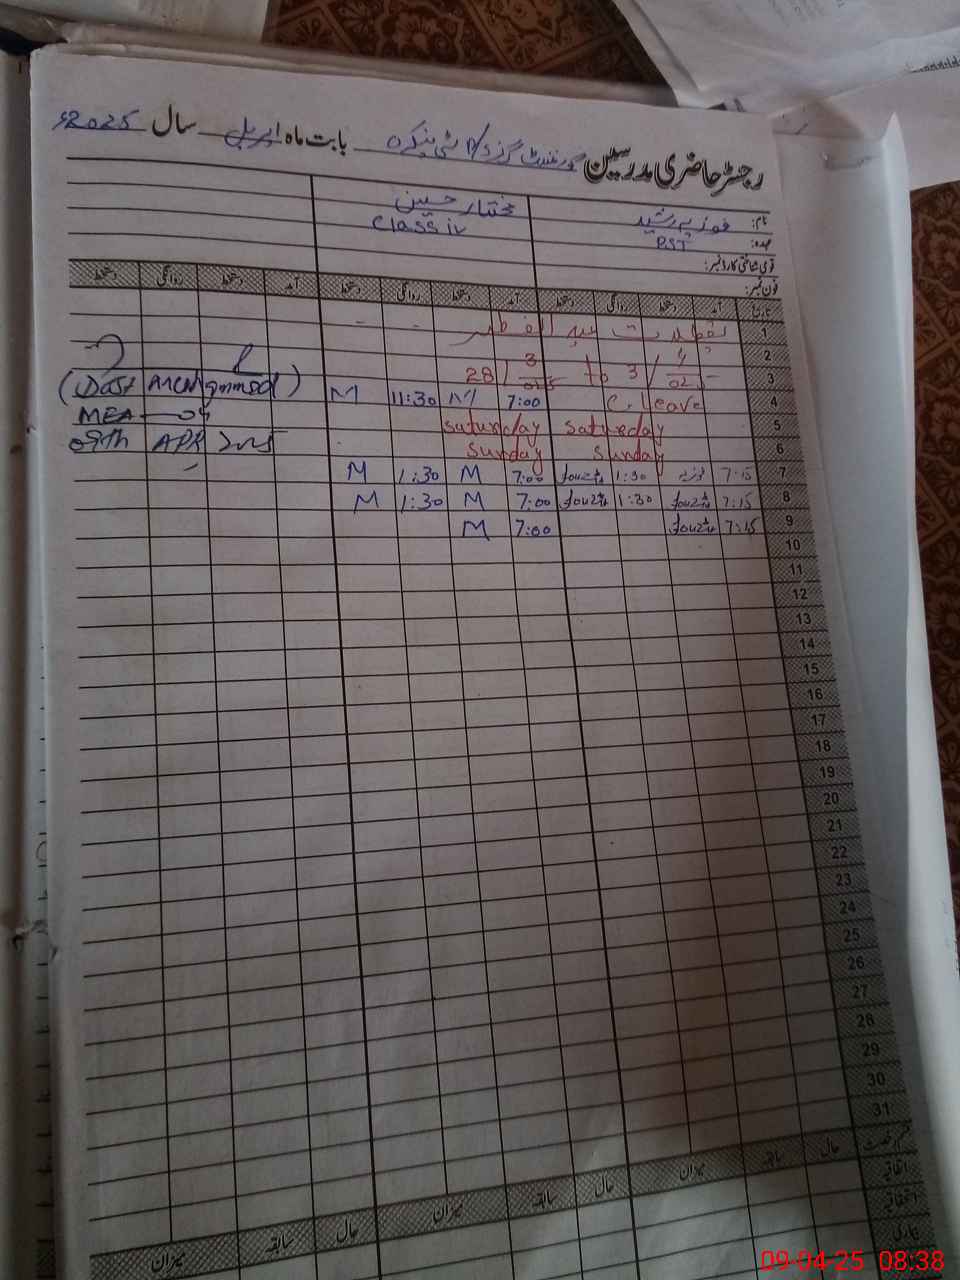 رجسٹر حاضری مدرسین گورنمنٹ گرلز P/S بابت ماہ اپریل سال 2025ء
نام: فوزیہ رشید مختار حسین
عہدہ: PST Class iv
قومی شناختی کارڈ نمبر:
فون نمبر:
تاریخ آمد دستخط روانگی دستخط آمد دستخط روانگی دستخط آمد دستخط روانگی دستخط
1 تعطیلات عید الفطر
2
3 28/3 to 3/4
4 C. Leave 7:00 M 11:30 M
5 Saturday Saturday
6 Sunday Sunday
7 7:15 فوزیہ 1:30 7:00 M 1:30 M
8 7:15 1:30 7:00 M 1:30 M
9 7:15 7:00 M
(Dost Muhammad)
MEA
09th APR 2025
10
11
12
13
14
15
16
17
18
19
20
21
22
23
24
25
26
27
28
29
30
31
حال سابقہ میزان حال سابقہ میزان حال سابقہ میزان
اتفاقیہ
بیماری
09-04-25 08:38